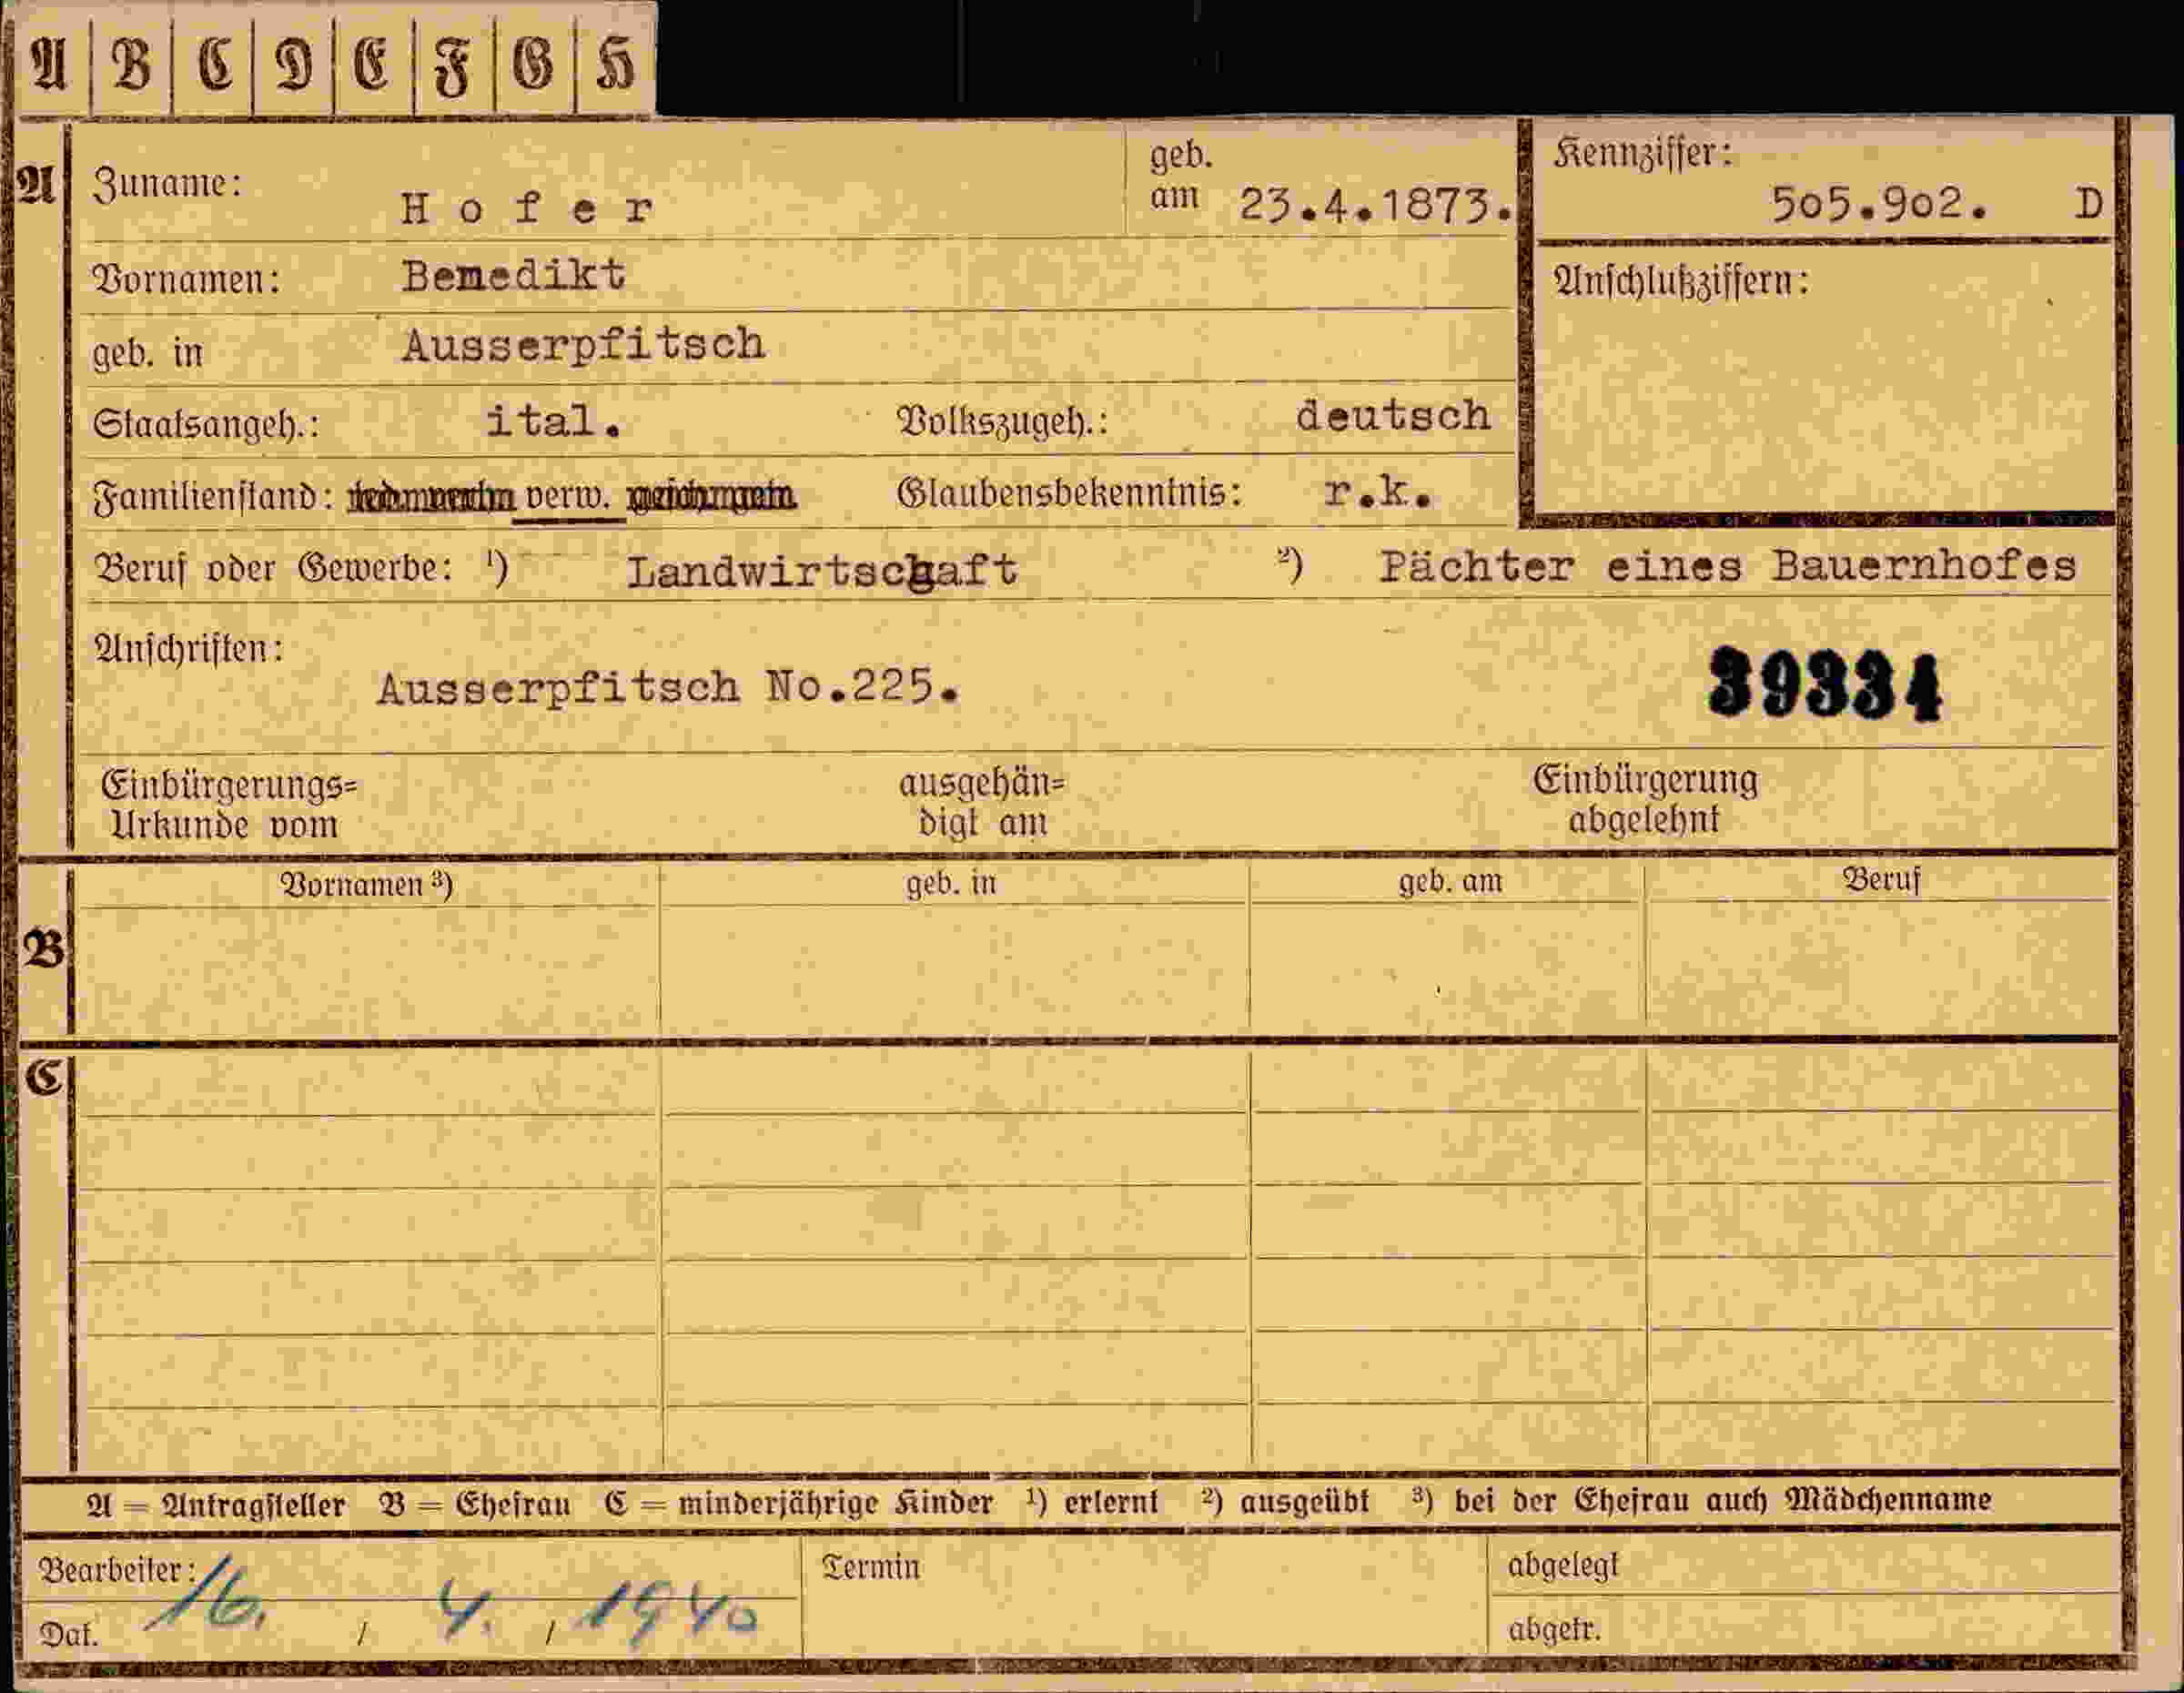 A B C D E F G H
A Zuname: Hofer geb. am 23.4.1873. Kennziffer: 505.902. D
Vornamen: Benedikt Anschlußziffern:
geb. in Ausserpfitsch
Staatsangeh.: ital. Volkszugeh.: deutsch
Familienstand: verw. Glaubensbekenntnis: r.k.
Beruf oder Gewerbe: ¹) Landwirtschaft ²) Pächter eines Bauernhofes
Anschriften:
Ausserpfitsch No.225. 39334
Einbürgerungs= ausgehän= Einbürgerung
Urkunde vom digt am abgelehnt
Vornamen ³) geb. in geb. am Beruf
B
C
A = Antragsteller B = Ehefrau C = minderjährige Kinder ¹) erlernt ²) ausgeübt ³) bei der Ehefrau auch Mädchenname
Bearbeiter: Termin abgelegt
Dat. 16. / 4. / 1940 abgetr.